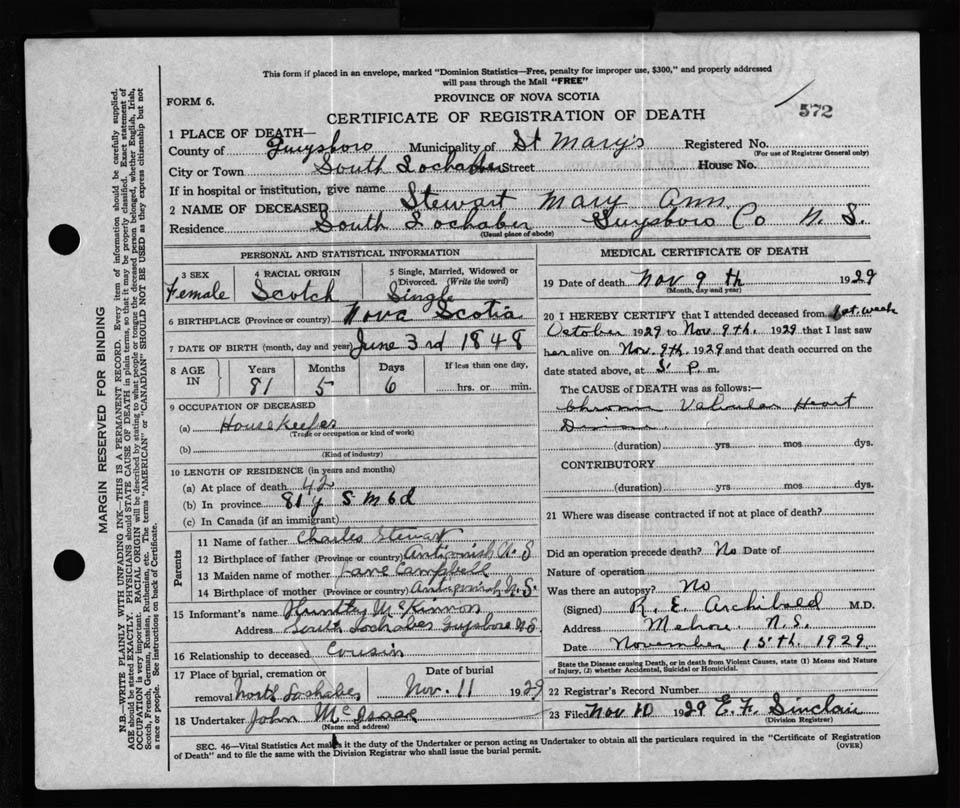 This form if placed in an envelope, marked "Dominion Statistics—Free, penalty for improper use, $300," and properly addressed
will pass through the Mail "FREE"
FORM 6.
PROVINCE OF NOVA SCOTIA
CERTIFICATE OF REGISTRATION OF DEATH
572
1 PLACE OF DEATH—
County of Guysboro Municipality of St Mary's Registered No.
(For use of Registrar General only)
City or Town South Lochaber Street House No.
If in hospital or institution, give name
2 NAME OF DECEASED Stewart Mary Ann
Residence South Lochaber Guysboro Co N. S.
(Usual place of abode)
PERSONAL AND STATISTICAL INFORMATION
3 SEX Female
4 RACIAL ORIGIN Scotch
5 Single, Married, Widowed or Divorced. (Write the word) Single
6 BIRTHPLACE (Province or country) Nova Scotia
7 DATE OF BIRTH (month, day and year) June 3rd 1848
8 AGE IN Years 81 Months 5 Days 6 If less than one day, hrs. or min.
9 OCCUPATION OF DECEASED
(a) Housekeeper
(Trade or occupation or kind of work)
(b)
(Kind of industry)
10 LENGTH OF RESIDENCE (in years and months)
(a) At place of death 42
(b) In province 81 y 5 m 6 d
(c) In Canada (if an immigrant)
Parents
11 Name of father Charles Stewart
12 Birthplace of father (Province or country) Antigonish N. S
13 Maiden name of mother Jane Campbell
14 Birthplace of mother (Province or country) Antigonish N. S.
15 Informant's name Huntley McKinnon
Address South Lochaber Guysboro N S
16 Relationship to deceased Cousin
17 Place of burial, cremation or removal North Lochaber
Date of burial Nov. 11 1929
18 Undertaker John McIsaac
(Name and address)
MEDICAL CERTIFICATE OF DEATH
19 Date of death Nov 9th 1929
(Month, day and year)
20 I HEREBY CERTIFY that I attended deceased from last week
October 1929 to Nov 9th. 1929 that I last saw
her alive on Nov. 9th. 1929 and that death occurred on the
date stated above, at 5 P. m.
The CAUSE of DEATH was as follows:—
Chronic Valvular Heart
Disease
(duration) yrs. mos. dys.
CONTRIBUTORY
(duration) yrs. mos. dys.
21 Where was disease contracted if not at place of death?
Did an operation precede death? No Date of
Nature of operation
Was there an autopsy? No
(Signed) R. E. Archibald M.D.
Address N.S.
Date November 15th. 1929
State the Disease causing Death, or in death from Violent Causes, state (1) Means and Nature
of Injury, (2) whether Accidental, Suicidal or Homicidal.
22 Registrar's Record Number
23 Filed Nov 10 1929 E. F. Sinclair
(Division Registrar)
SEC. 46—Vital Statistics Act makes it the duty of the Undertaker or person acting as Undertaker to obtain all the particulars required in the "Certificate of Registration
of Death" and to file the same with the Division Registrar who shall issue the burial permit.
(OVER)
MARGIN RESERVED FOR BINDING
N.B.—WRITE PLAINLY WITH UNFADING INK—THIS IS A PERMANENT RECORD. Every item of information should be carefully supplied.
AGE should be stated EXACTLY. PHYSICIANS should STATE CAUSE OF DEATH in plain terms, so that it may be properly classified. Exact statement of
OCCUPATION is very important. RACIAL ORIGIN will be described by stating to what people or tongue the deceased person belonged, whether English, Irish,
Scotch, French, German, Russian, Ruthenian, etc. The terms "AMERICAN" or "CANADIAN" SHOULD NOT BE USED as they express citizenship but not
a race or people. See instructions on back of Certificate.